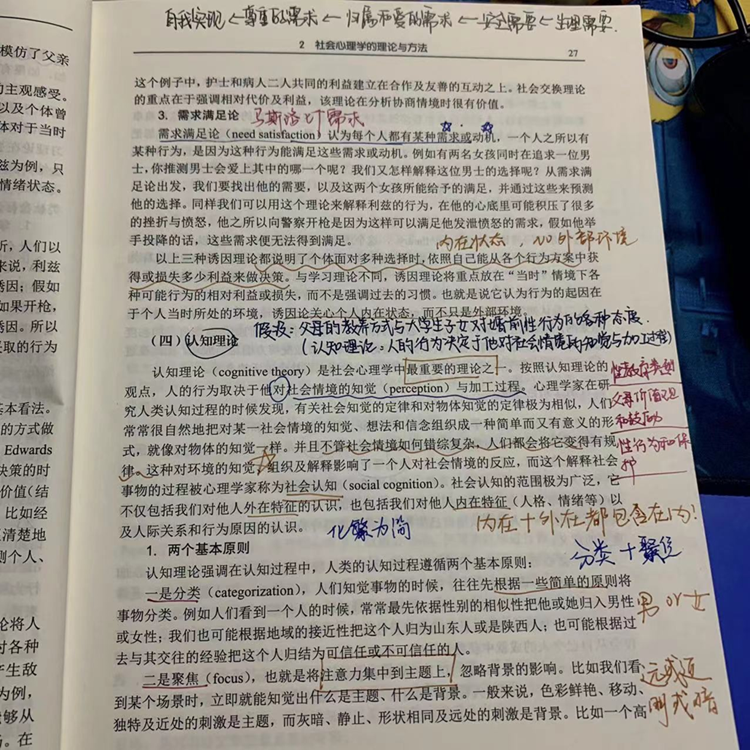 自我实现←尊重的需求←归属和爱的需求←安全需要←生理需要.
2 社会心理学的理论与方法 27
模仿了父亲
的主观感受。
以及个体曾
体对于当时
兹为例，只
情绪状态。
析，人们以
来说，利兹
诱因；假如
如果开枪，
诱因。所以
采取的行为
基本看法。
的方式做
Edwards
决策的时
价值（结
比如经
更清楚地
测个人、
论将人
对各种
产生敌
为例，
能够从
这个例子中，护士和病人二人共同的利益建立在合作及友善的互动之上。社会交换理论
的重点在于强调相对代价及利益，该理论在分析协商情境时很有价值。
3. 需求满足论 马斯洛：需求
需求满足论（need satisfaction）认为每个人都有某种需求或动机，一个人之所以有
某种行为，是因为这种行为能满足这些需求或动机。例如有两名女孩同时在追求一位男
士，你推测男士会爱上其中的哪一个呢？我们又怎样解释这位男士的选择呢？从需求满
足论出发，我们要找出他的需要，以及这两个女孩所能给予的满足，并通过这些来预测
他的选择。同样我们可以用这个理论来解释利兹的行为，在他的心底里可能积压了很多
的挫折与愤怒，他之所以向警察开枪是因为这样可以满足他发泄愤怒的需求，假如他举
手投降的话，这些需求便无法得到满足。
内在状态，外部环境
以上三种诱因理论都说明了个体面对多种选择时，依照自己能从各个行为方案中获
得或损失多少利益来做决策。与学习理论不同，诱因理论将重点放在“当时”情境下各
种可能行为的相对利益或损失，而不是强调过去的习惯。也就是说它认为行为的起因在
于个人当时所处的环境，诱因论关心个人内在状态，而不只是外部环境。
（四）认知理论
假设：父母的教养方式与大学生子女对婚前性行为的各种态度.
（认知理论：人的行为决定于他对社会情境的知觉与加工过程）
认知理论（cognitive theory）是社会心理学中最重要的理论之一。按照认知理论的
观点，人的行为取决于他对社会情境的知觉（perception）与加工过程。心理学家在研
究人类认知过程的时候发现，有关社会知觉的定律和对物体知觉的定律极为相似，人们
常常很自然地把对某一社会情境的知觉、想法和信念组织成一种简单而又有意义的形
式，就像对物体的知觉一样。并且不管社会情境如何错综复杂，人们都会将它变得有规
律。这种对环境的知觉、组织及解释影响了一个人对社会情境的反应，而这个解释社会
事物的过程被心理学家称为社会认知（social cognition）。社会认知的范围极为广泛，它
不仅包括我们对他人外在特征的认识，也包括我们对他人内在特征（人格、情绪等）以
及人际关系和行为原因的认识。
化繁为简
内在+外在都包含在内!
1. 两个基本原则
分类+聚焦
认知理论强调在认知过程中，人类的认知过程遵循两个基本原则：
一是分类（categorization），人们知觉事物的时候，往往先根据一些简单的原则将
事物分类。例如人们看到一个人的时候，常常最先依据性别的相似性把他或她归入男性
男 or 女
或女性；我们也可能根据地域的接近性把这个人归为山东人或是陕西人；也可能根据过
去与其交往的经验把这个人归结为可信任或不可信任的人。
二是聚焦（focus），也就是将注意力集中到主题上，忽略背景的影响。比如我们看
远或近
到某个场景时，立即就能知觉出什么是主题、什么是背景。一般来说，色彩鲜艳、移动、
明或暗
独特及近处的刺激是主题，而灰暗、静止、形状相同及远处的刺激是背景。比如一个高